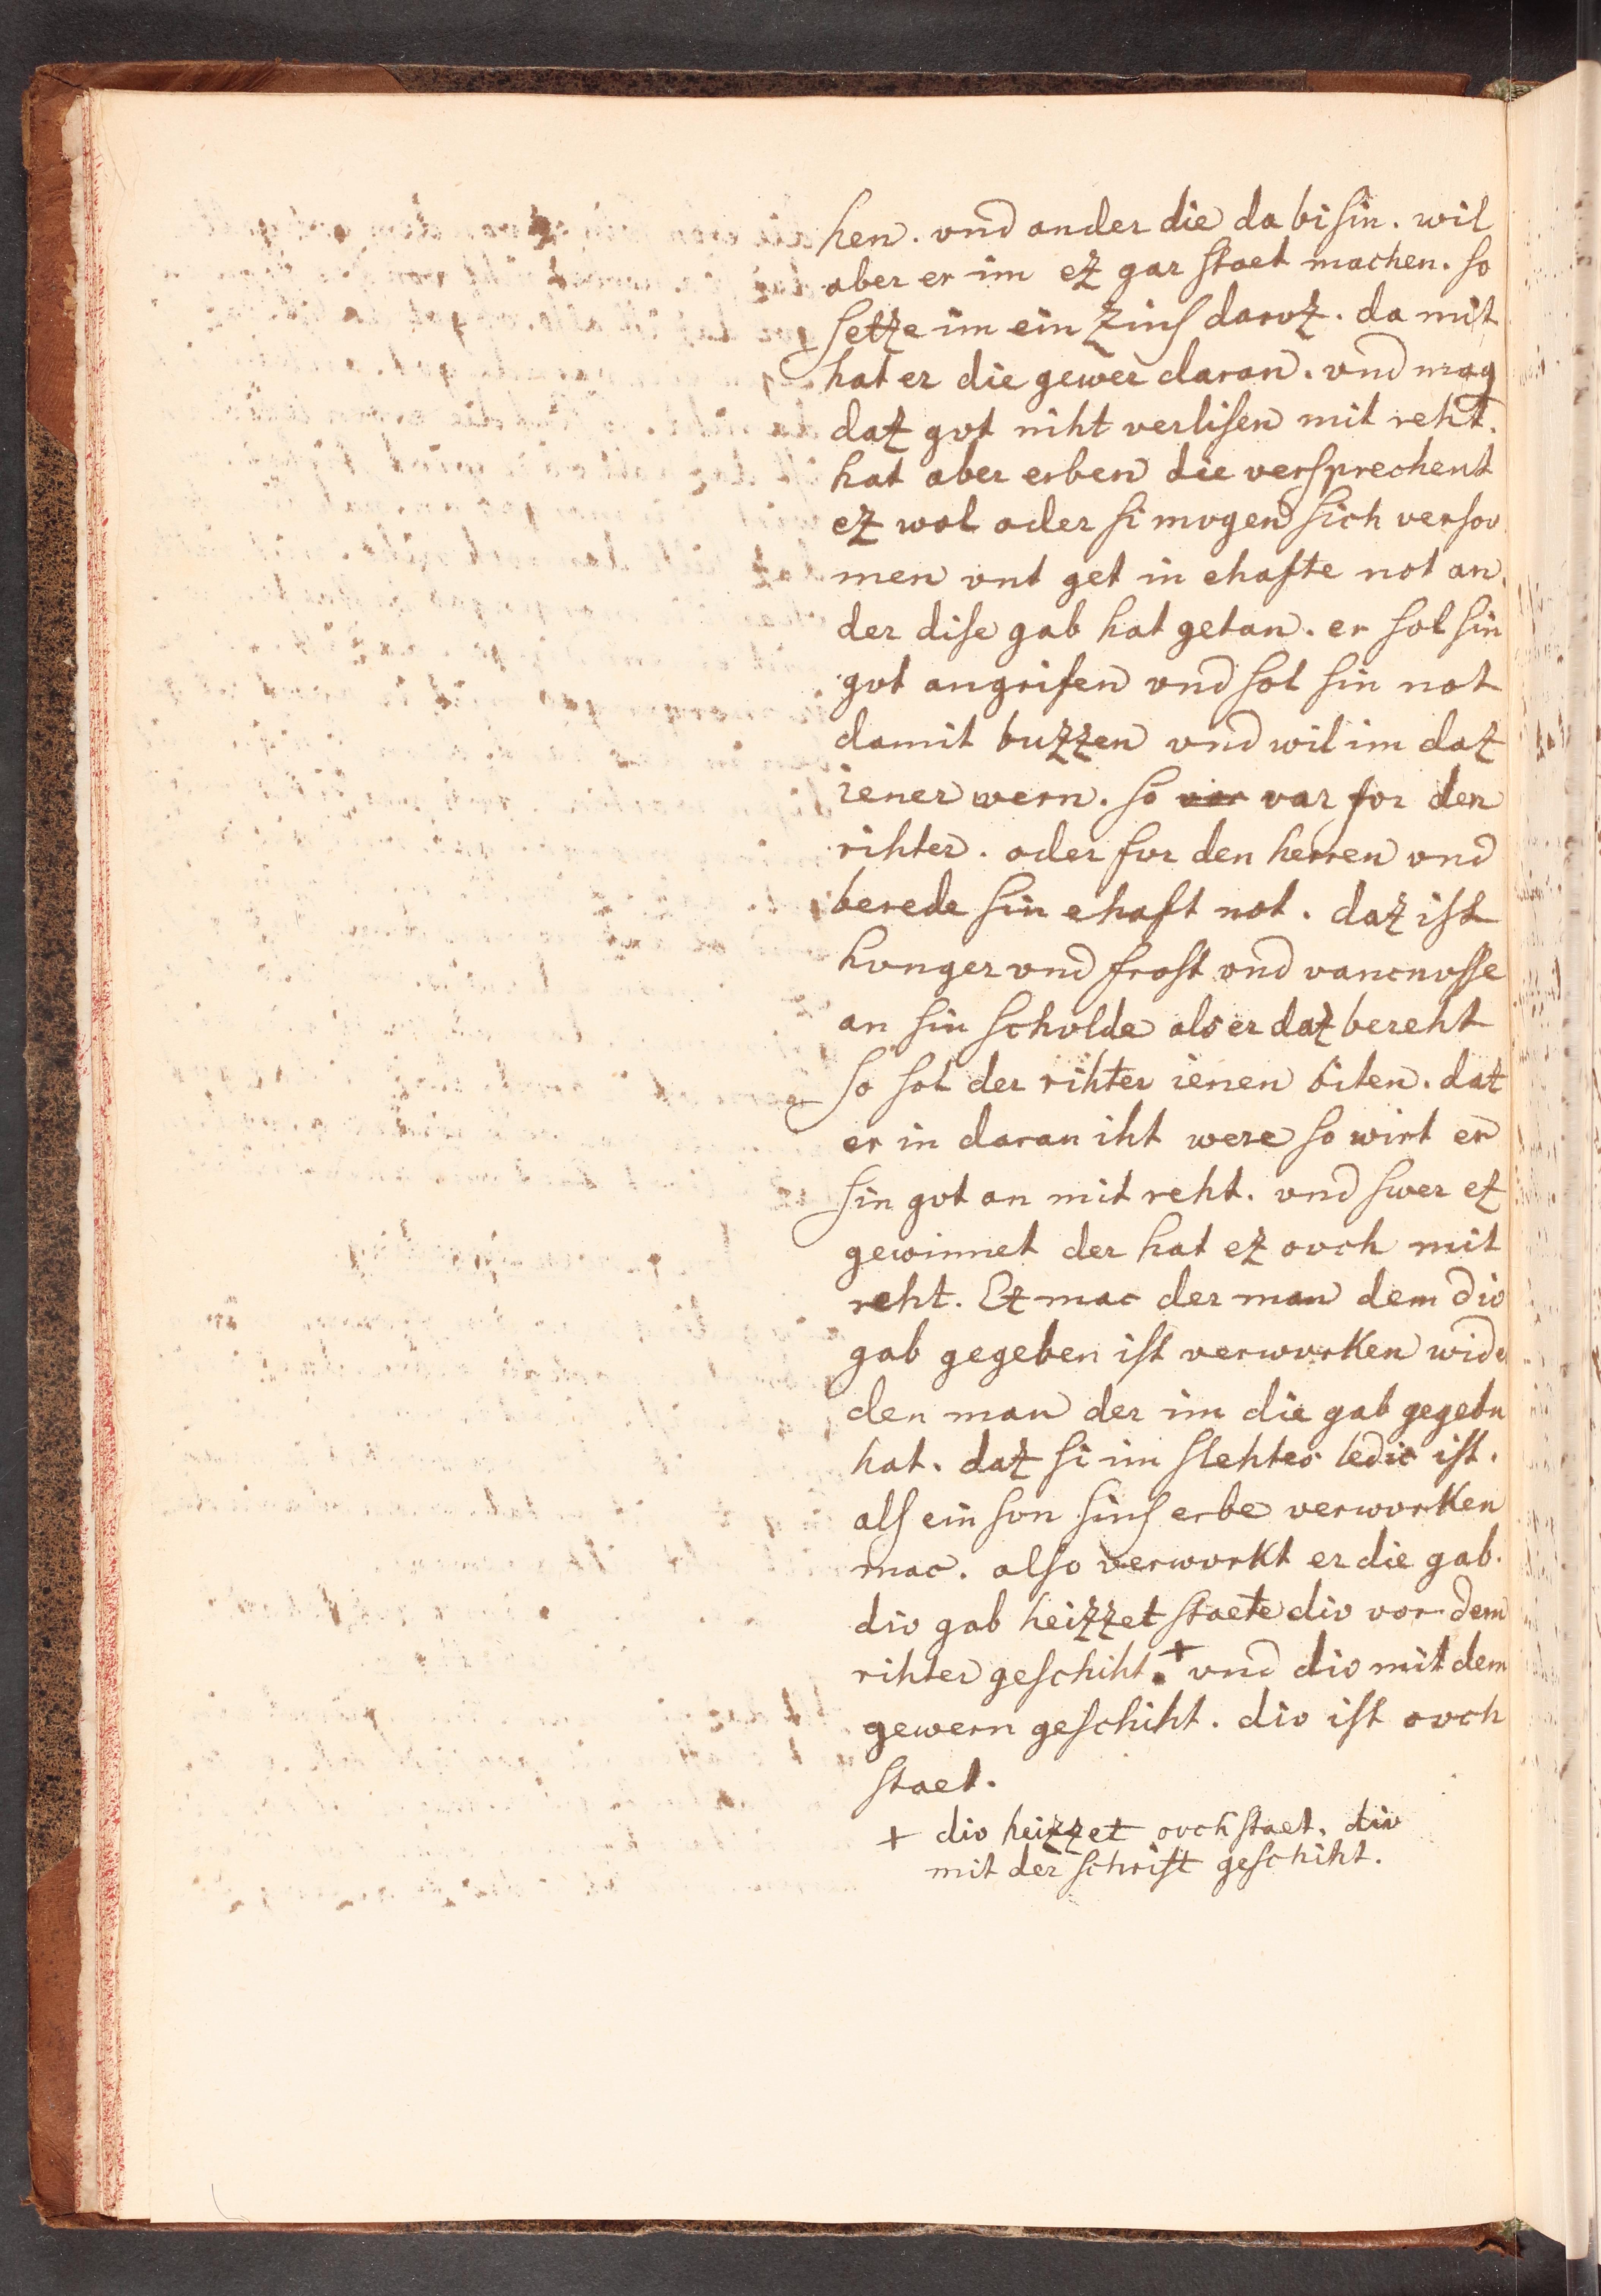 hen. vnd ander die da bi ſin. wil
aber er im ez gar ſtaet machen. ſo
ſetze im ein zinſ darvz. da mit
hat er die gewer daran. vnd mag
daz gvt niht verliſen mit reht.
hat aber erben die verſprechent
ez wol oder ſi mvgen ſich verſov
men vnt get in ehafte not an.
der diſe gab hat getan. er ſol ſin
gvt angrifen vnd ſol ſin not
damit buzzen vnd wil im daz
iener wern. ſo var var for den
rihter. oder fvr den herren vnd
berede ſin ehaft not. daz iſt
hvnger vnd froſt vnd vancnvſſe
an ſin ſchvlde als er daz bereht
ſo ſol der rihter ienen biten. daz
er in daran iht were ſo wirt er
ſin gvt an mit reht. vnd ſwer ez
gewinnet der hat ez ovch mit
reht. Ez mac der man dem div
gab gegeben iſt verwvrken wider
den man der im die gab gegebn
hat. daz ſi im ſlehtes ledic iſt.
alſ ein ſvn ſinſ erbe verwvrken
mac. alſo verwvrkt er die gab.
div gab heizzet ſtaete div vor dem
rihter geſchiht. + vnd div mit dem
gewern geſchiht. div iſt ovch
ſtaet.
+ div heizzet ovch ſtaet. div
mit der ſchrift geſchiht.